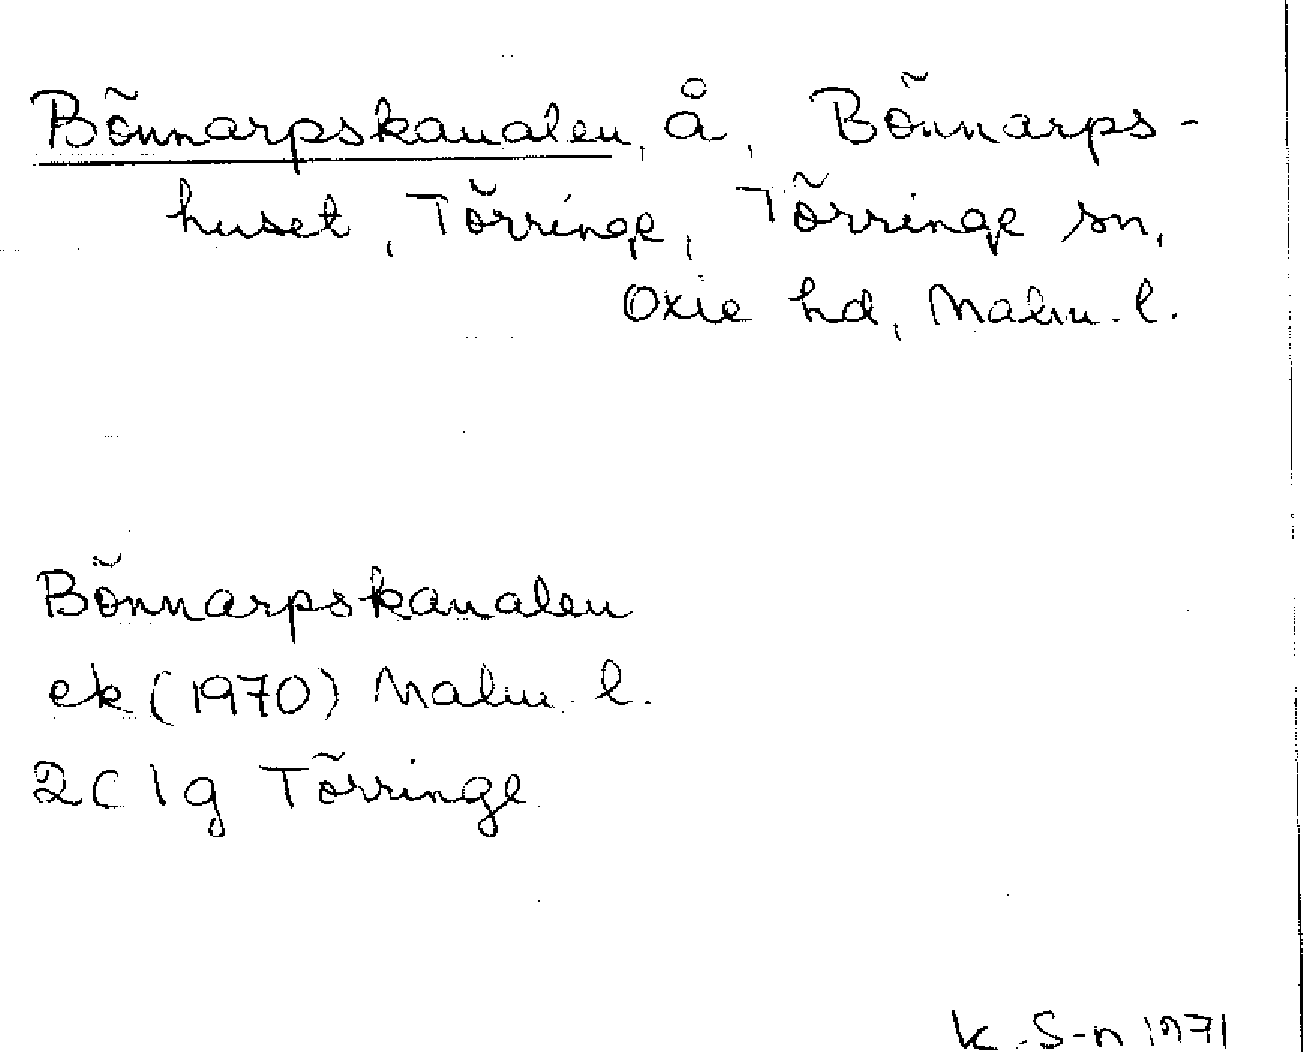 Bönnarpskanalen, å, Bönnarps-
huset, Törringe, Törringe sn,
Oxie hd, Malm. l.
Bönnarpskanalen
ek (1970) Malm. l.
2C 1g Törringe
K. S-n 1971